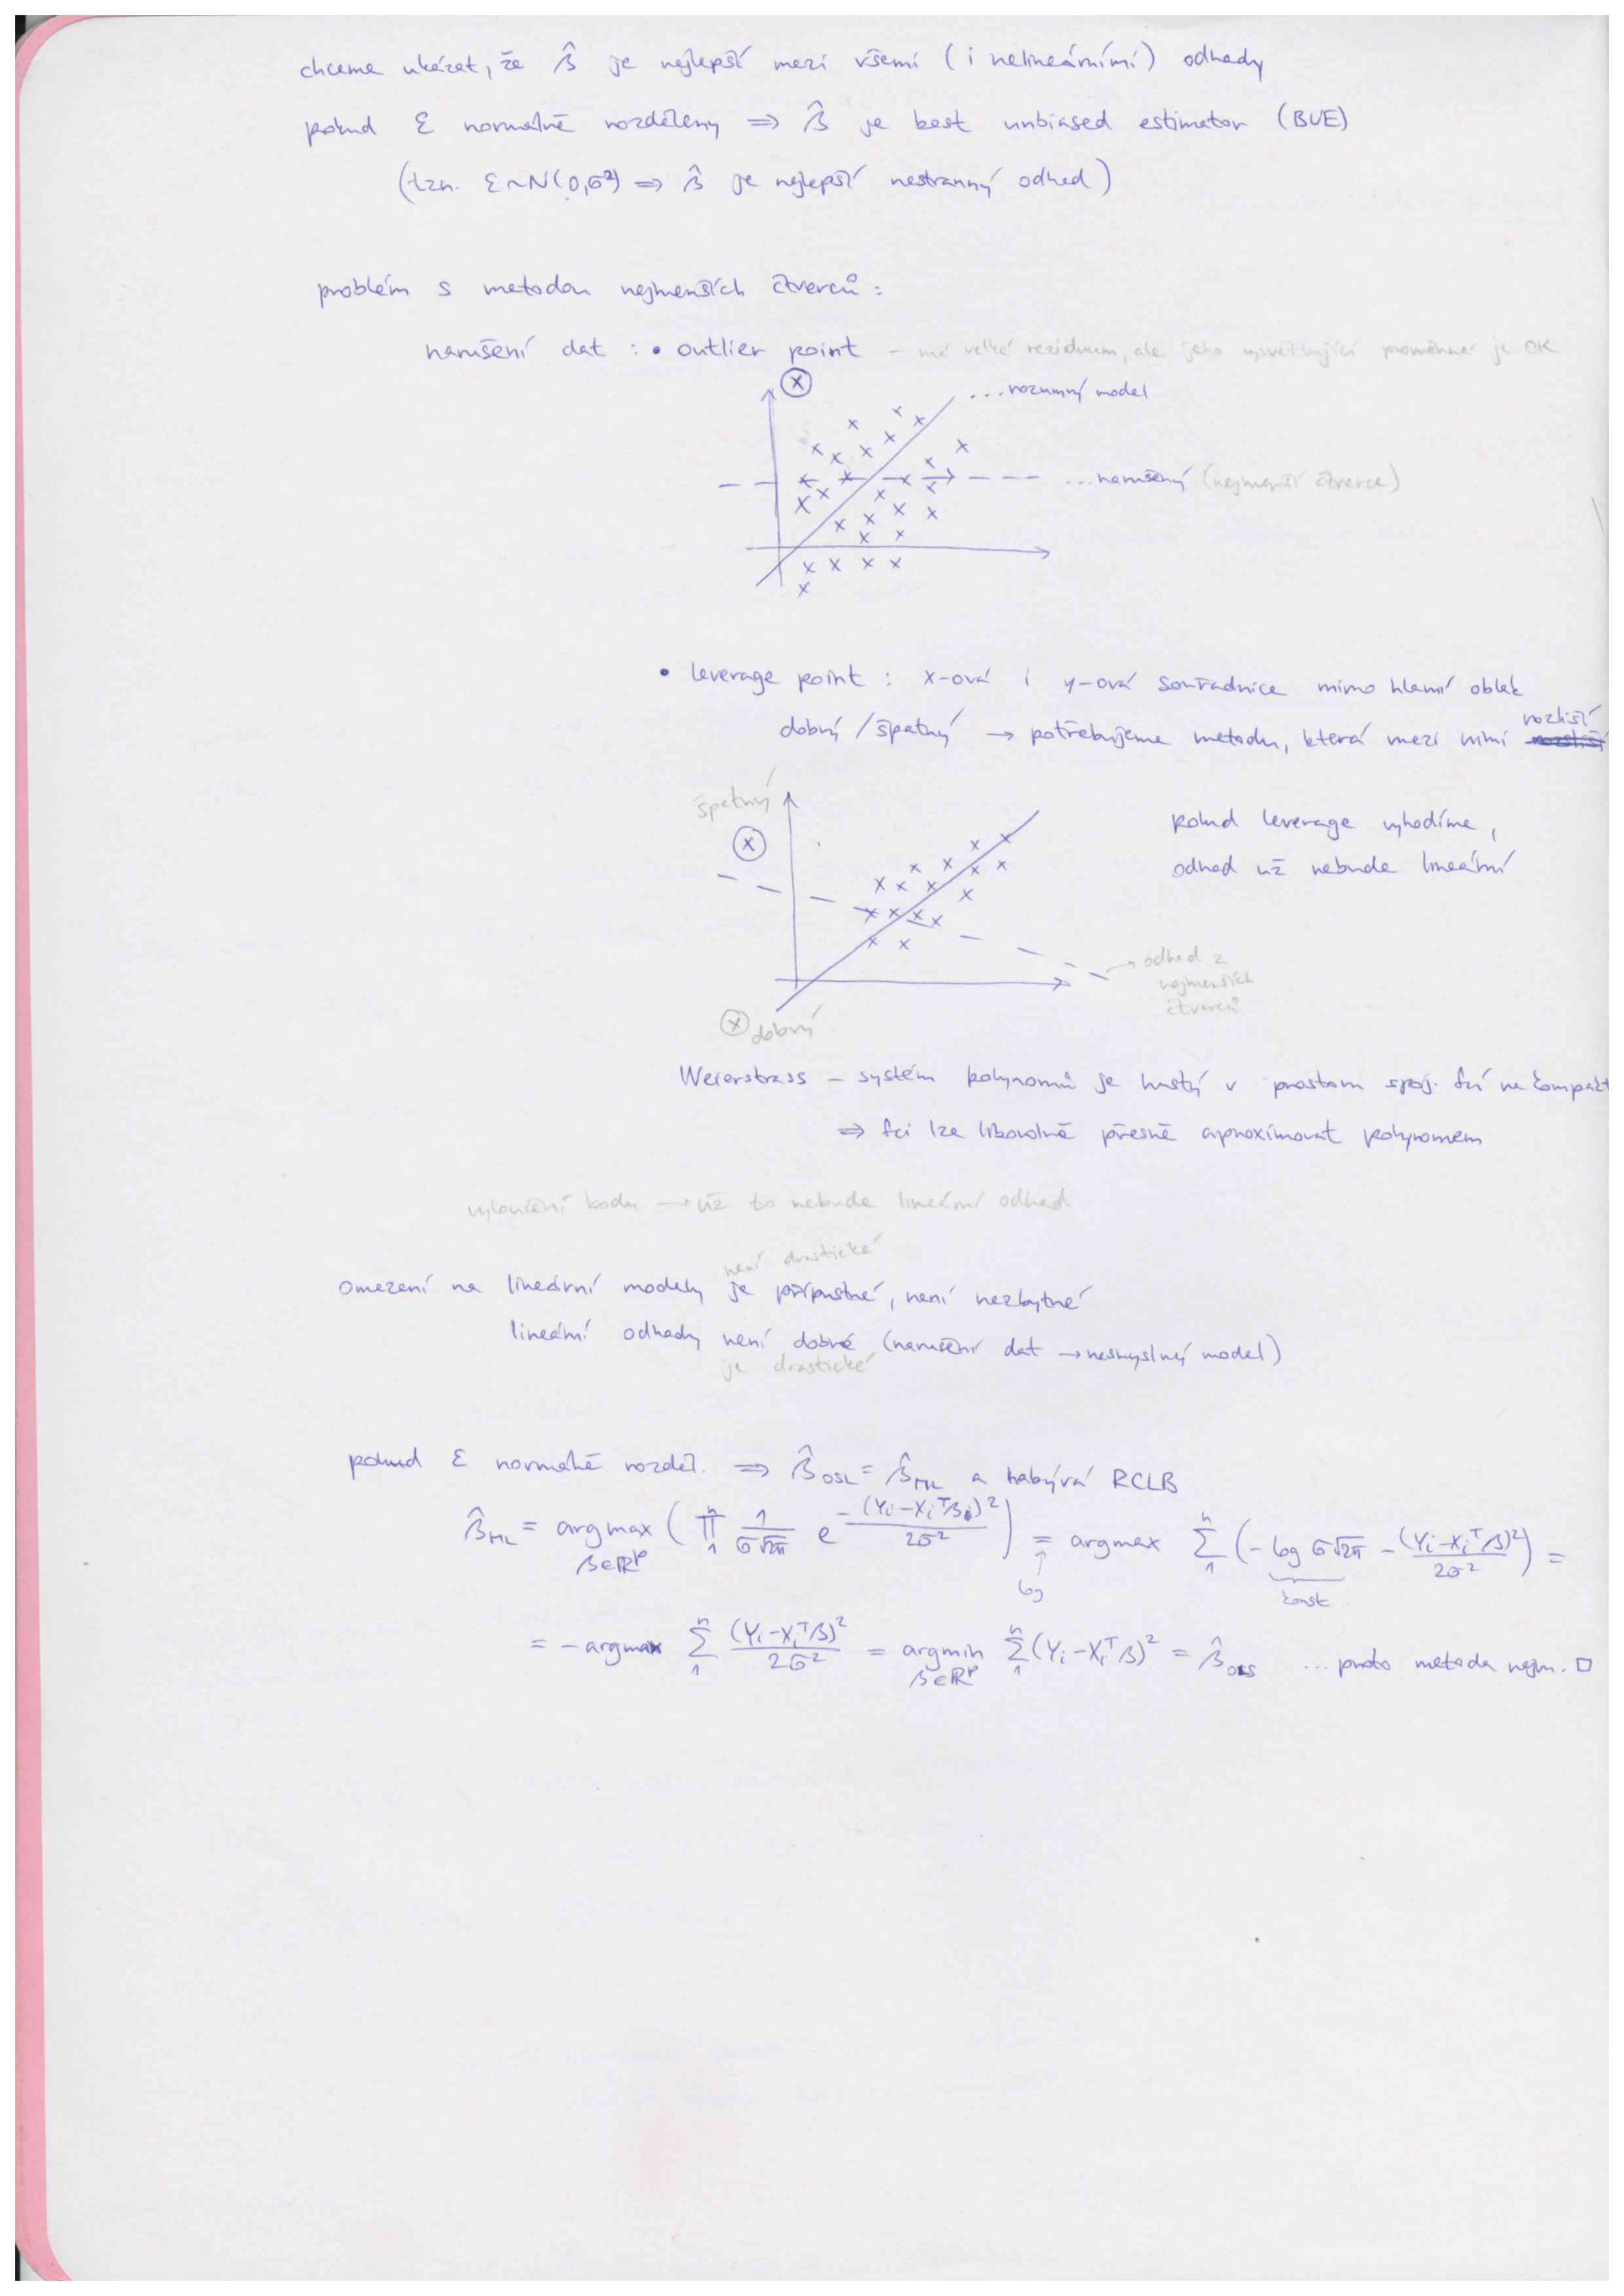 chceme ukázat, že β̂ je nejlepší mezi všemi (i nelineárními) odhady
pokud ε normálně rozděleny ⇒ β̂ je best unbiased estimator (BUE)
(tzn. ε~N(0,σ²) ⇒ β̂ je nejlepší nestranný odhad)
problém s metodou nejmenších čtverců:
narušení dat : • outlier point – má velké reziduum, ale jeho vysvětlující proměnná je OK
...rozumný model
...narušený (nejmenší čtverce)
• leverage point : x-ová i y-ová souřadnice mimo hlavní oblak
dobrý/špatný → potřebujeme metodu, která mezi nimi rozliší
špatný
pokud leverage vyhodíme,
odhad už nebude lineární
→ odhad z
nejmenších
čtverců
dobrý
Weierstrass – systém polynomů je hustý v prostoru spoj. fcí na kompakt
⇒ fci lze libovolně přesně aproximovat polynomem
vyloučení bodu → už to nebude lineární odhad
není drastické
omezení na lineární modely je přípustné, není nezbytné
lineární odhady není dobré (narušení dat → nesmyslný model)
je drastické
pokud ε normálně rozděl. ⇒ β̂_OSL = β̂_ML a nabývá RCLB
β̂_ML = argmax_{β∈ℝᵖ} (∏₁ⁿ 1/(σ√2π) e^{-(Yi-XiᵀβI)²/2σ²}) = argmax ∑₁ⁿ (-log σ√2π - (Yi-Xiᵀβ)²/2σ²) =
↑
log
konst
= -argmax ∑₁ⁿ (Yi-Xiᵀβ)²/2σ² = argmin_{β∈ℝᵖ} ∑₁ⁿ (Yi-Xiᵀβ)² = β̂_OLS ...proto metoda nejm. □